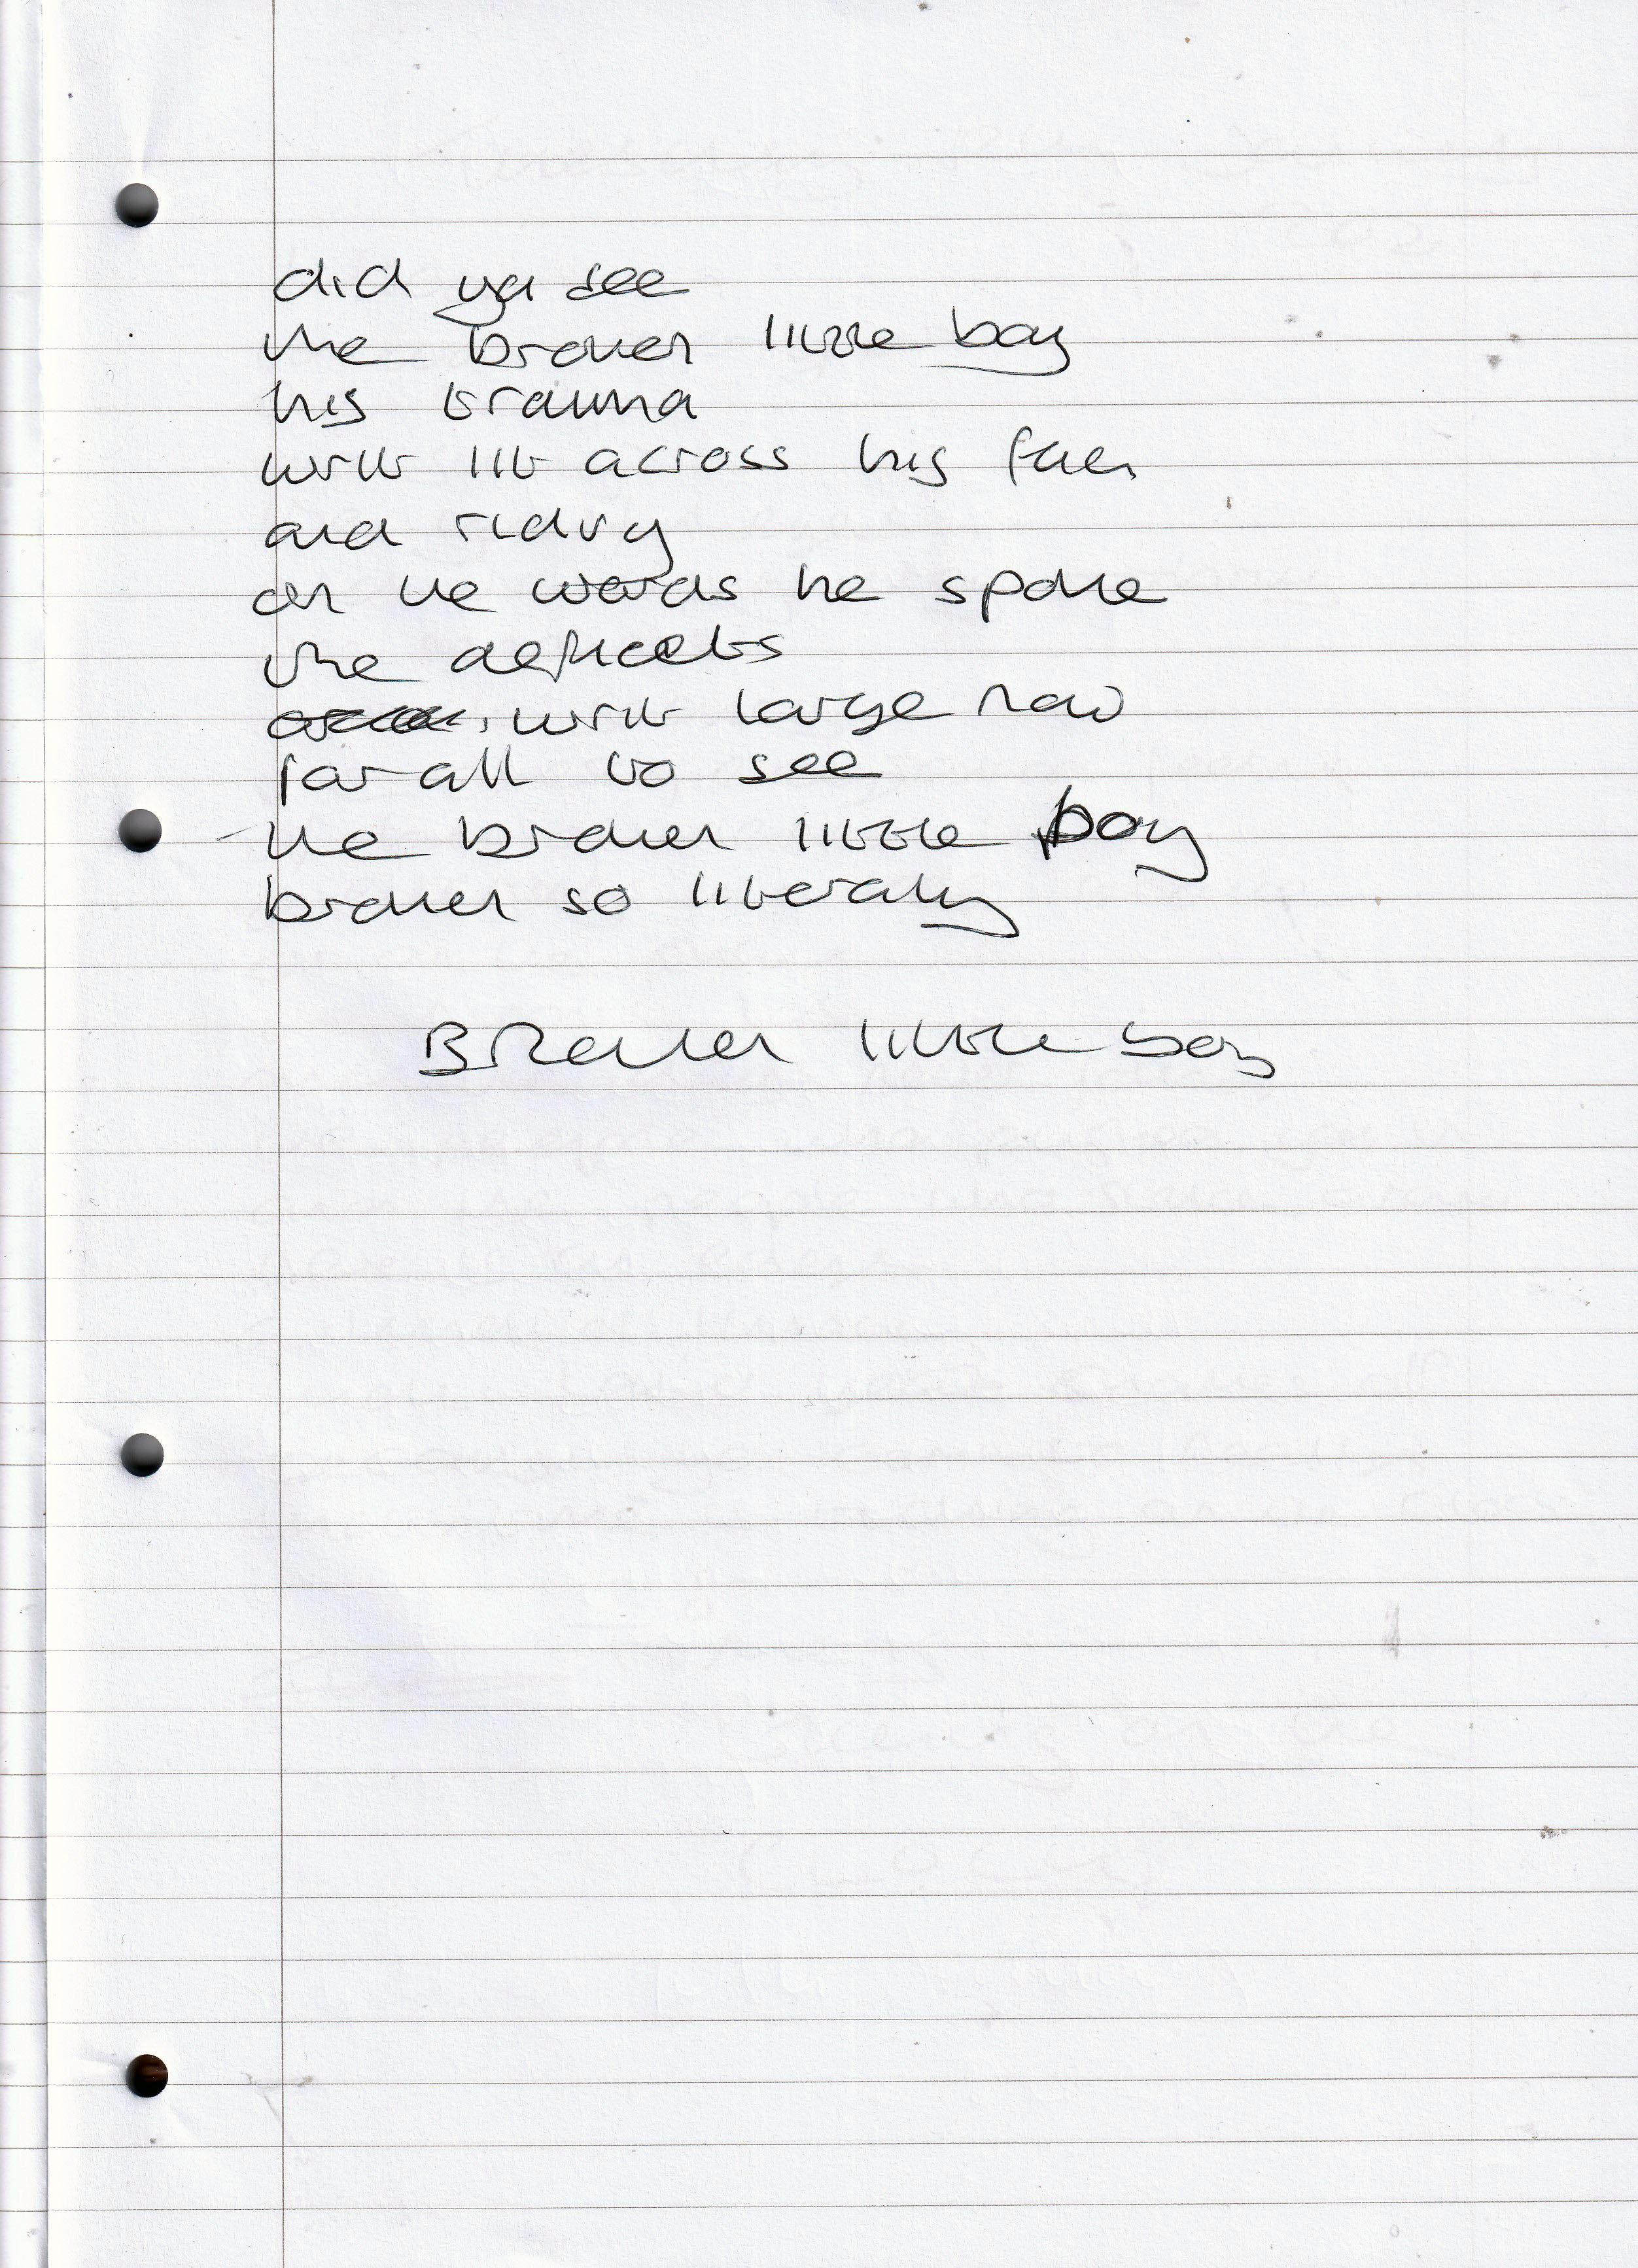 did ya see
the broken little boy
his trauma
writ lit across his face
and riding
on the words he spoke
the deficits
writ large now
for all to see
the broken little boy
broken so literally
Broken little boy